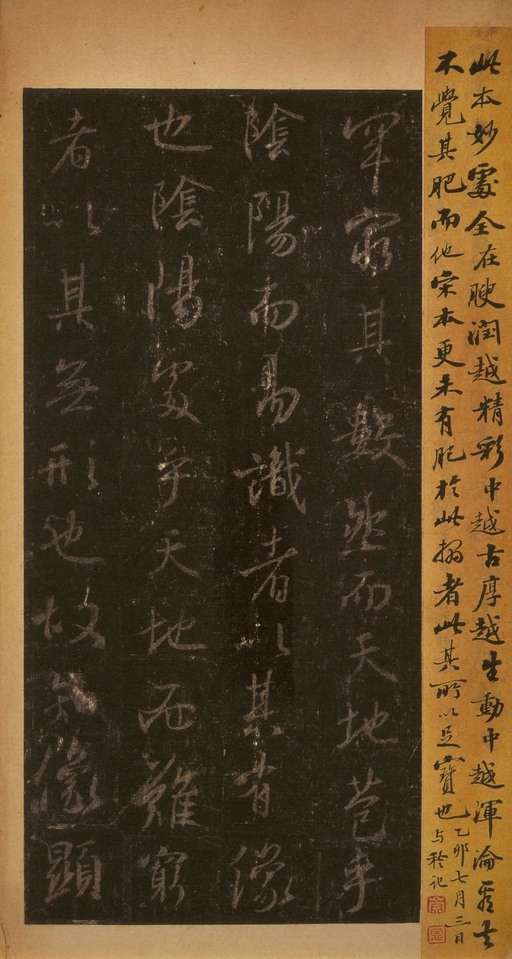 此本妙處全在腴潤越精彩中越古厚越生動中越渾淪看去
不覺其肥而他宋本更未有肥於此搨者此其所以足寶也
乙卯七月三日
与舲記
崇恩
罕窮其數然而天地苞乎
陰陽而易識者以其有像
也陰陽處乎天地而難窮
者以其無形也故知像顯